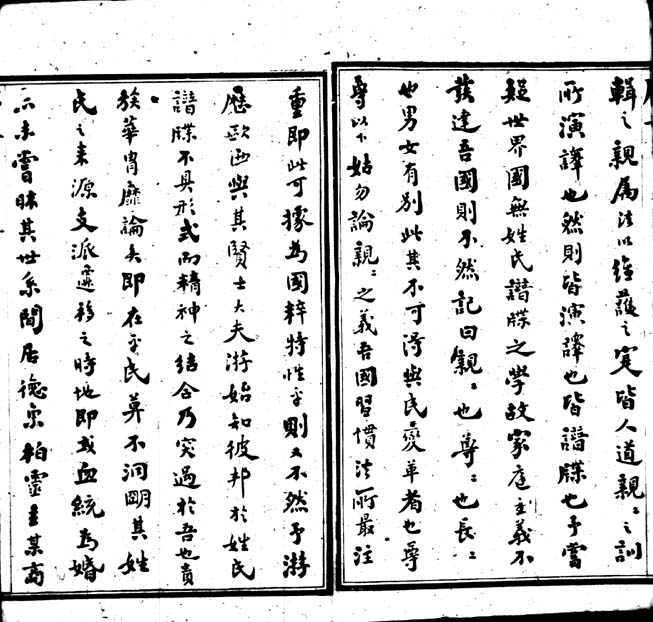 輯之親屬法以維護之寔皆人道親〻之訓
所演譯也然則皆演譯也皆譜牒也予嘗
疑世界國無姓民譜牒之學故家庭主義不
發達吾國則不然記曰親〻也尊〻也長〻
也男女有別此其不可得與民變革者也尊
尊以下姑勿論親〻之義吾國習慣法所最注
重即此可據為國粹特性乎則又不然予游
歷歐西與其賢士大夫游始知彼邦於姓氏
譜牒不具形式而精神之結合乃突過於吾也貴
族華胄靡論矣即在平民莫不洞明其姓
氏之來源支派遷移之時地即或血統為婚
亦未嘗昧其世系間居德京柏靈主某商